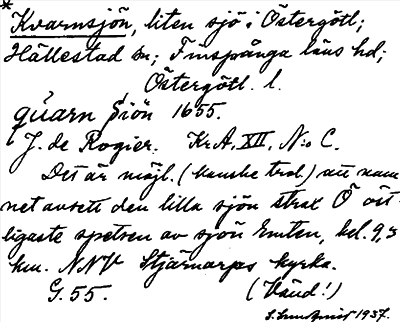 * Kvarnsjön, liten sjö i Östergötl;
Hällestad sn; Finspånga läns hd;
Östergötl. l.
quarn Siön 1655.
J. de Rogier. KrA, XII, N:o C.
Det är möjl. (kanske trol.) att nam-
net avsett den lilla sjön strax Ö öst-
ligaste spetsen av sjön Emten, bel. 9,5
km. NNV Stjärnorps kyrka.
G. 55. (Vänd!)
1937.